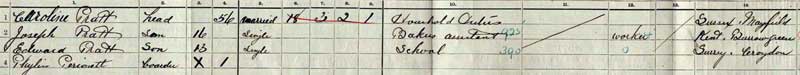 1 Caroline Pratt Head 56 Married 18 3 2 1 Household Duties Surrey Mayfield
2 Joseph Pratt Son 16 Single Bakers assistant worker Kent
3 Edward Pratt Son 13 Single School 390 0 Surrey Croydon
4 Phyllis Boarder X 1